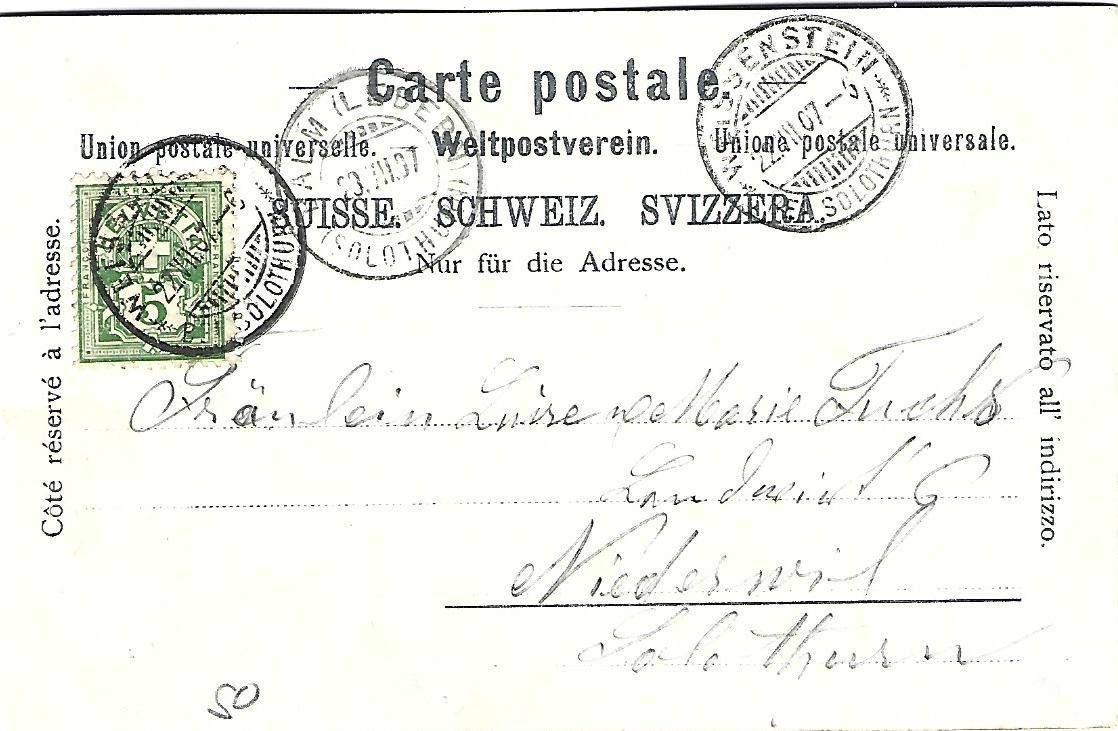 Carte postale.
Union postale universelle. Weltpostverein. Unione postale universale.
SUISSE. SCHWEIZ. SVIZZERA.
Nur für die Adresse.
Côté réservé à l'adresse.
Lato riservato all' indirizzo.
WEISSENSTEIN
22.VII.07
(SOLOTHURN)
ALM (LEBERN)
23.VII.07
(SOLOTHURN)
WEISSENSTEIN
22.VII.07
(SOLOTHURN)
FRANCO
5
Fräulein Luise u Marie Fuchs
Landwirt's
Niederwil
Solothurn
50